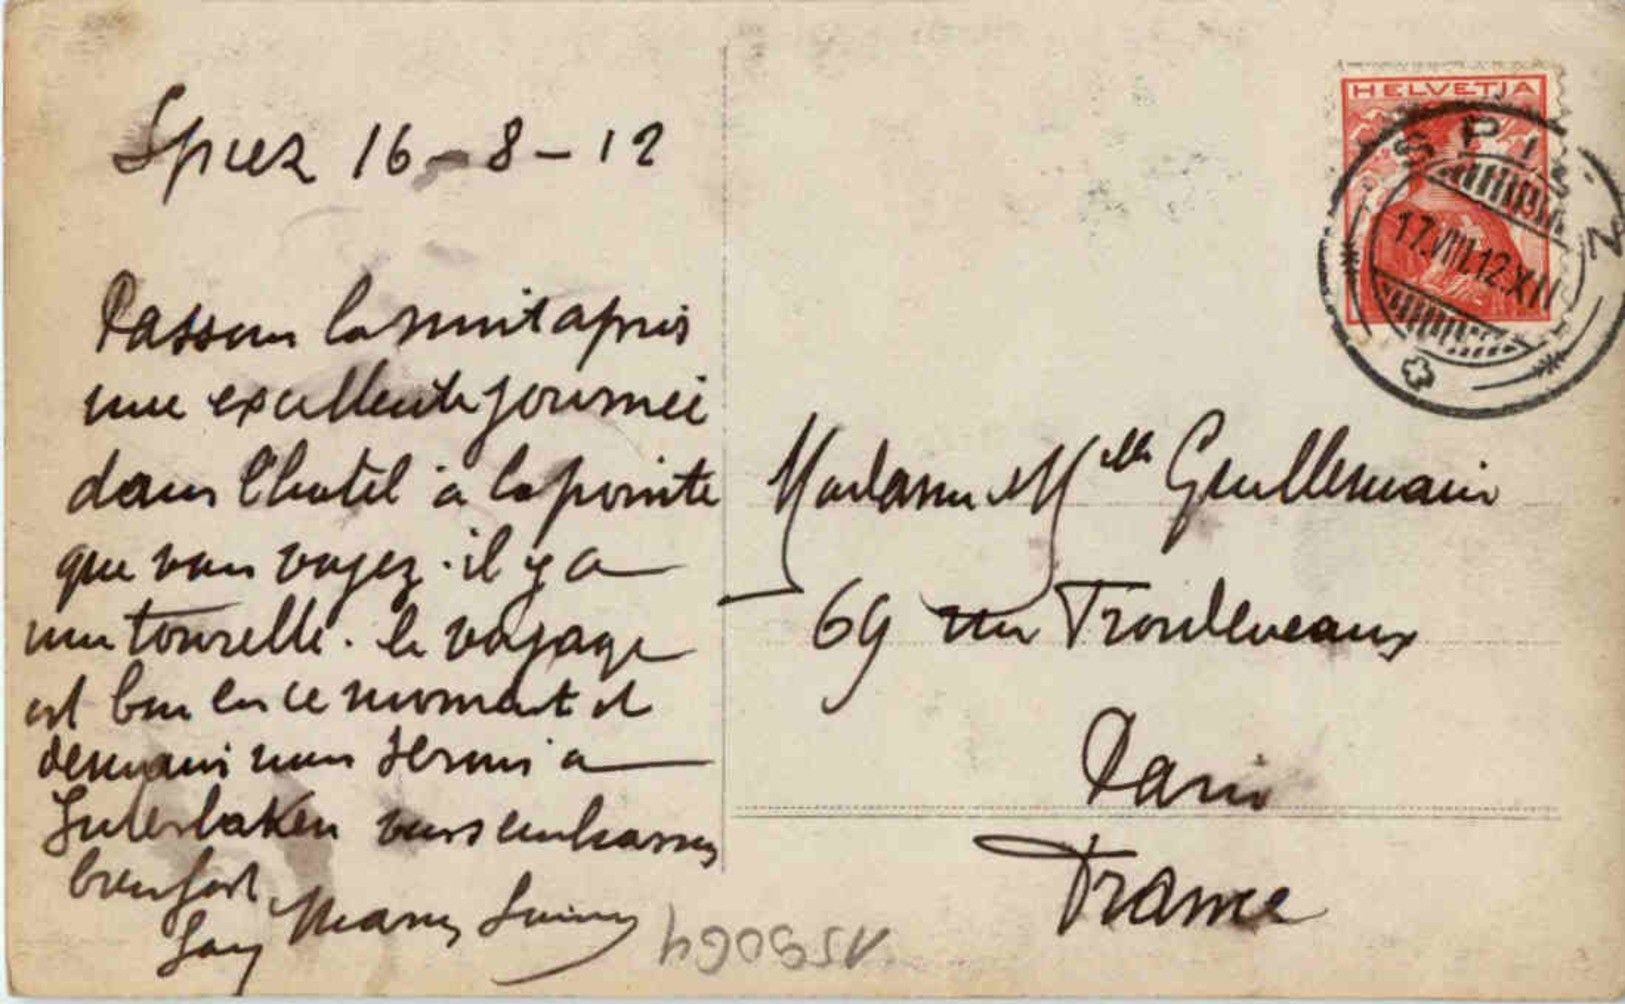 Spiez 16-8-12
Passons la nuit après
une excellente journée
dans l'hotel à la pointe
que vous voyez. il y a
une tourelle. le voyage
est bon en ce moment et
demain nous serons a
Interlaken vous embrassons
bien fort.
HELVETIA
SPIEZ
17.VIII.12.XII
Madame Mlle Guillemain
69 rue
Paris
France
159064